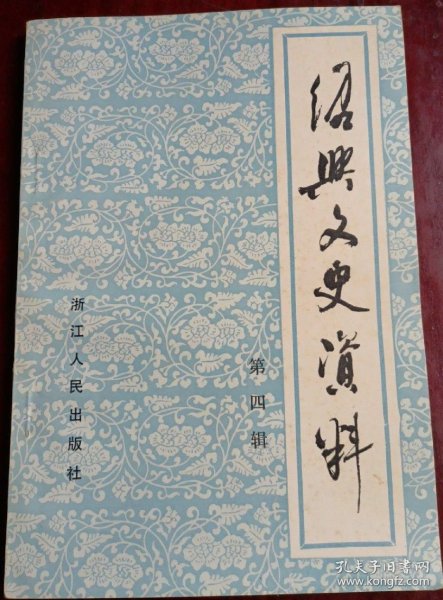 绍兴文史资料
第四辑
浙江人民出版社
孔夫子旧书网
www.kongfz.com